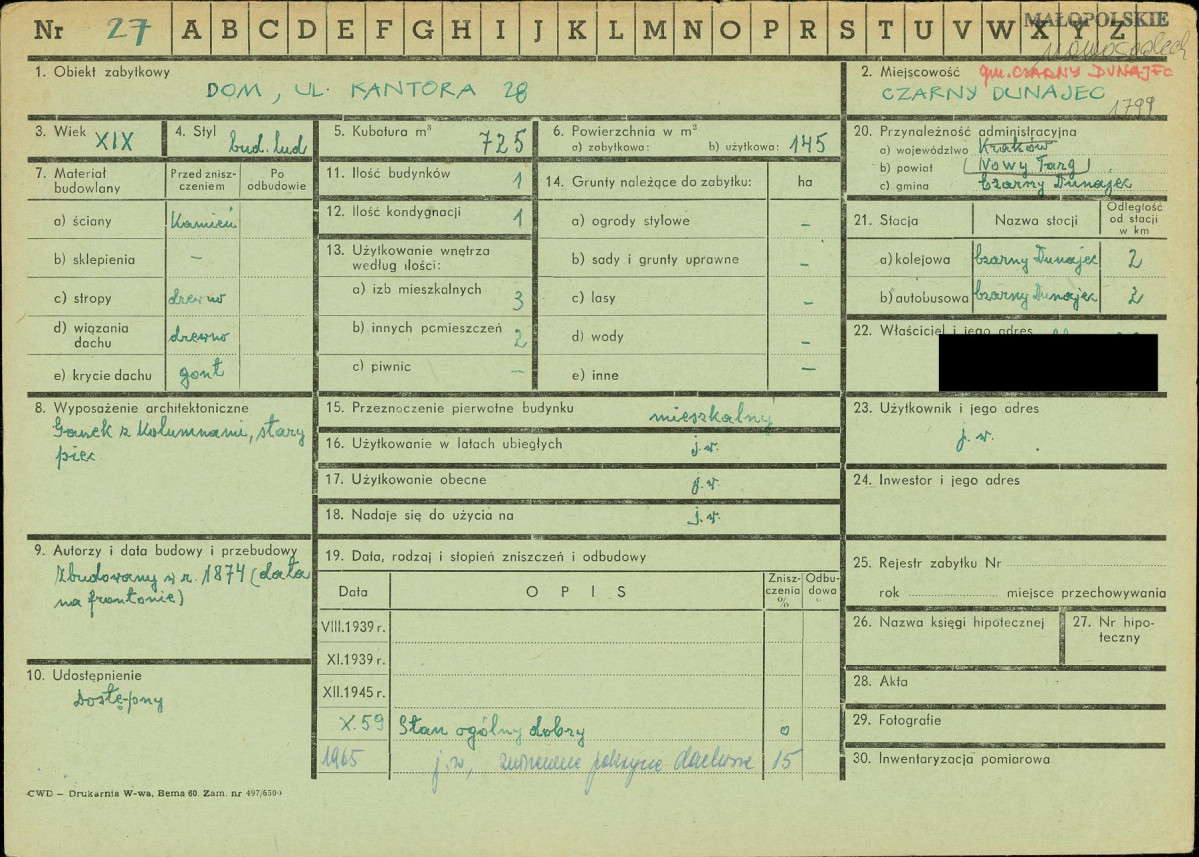 Nr 27 A B C D E F G H I J K L M N O P R S T U V W X Y Z
MAŁOPOLSKIE
1. Obiekt zabytkowy
DOM, UL. KANTORA 28
2. Miejscowość gm. CZARNY DUNAJEC
CZARNY DUNAJEC
1799
3. Wiek XIX
4. Styl bud. lud
5. Kubatura m³ 725
6. Powierzchnia w m²
a) zabytkowa: b) użytkowa: 145
7. Materiał budowlany
Przed zniszczeniem
Po odbudowie
a) ściany kamień
b) sklepienia –
c) stropy drewno
d) wiązania dachu drewno
e) krycie dachu gont
8. Wyposażenie architektoniczne
Ganek z kolumnami, stary
piec
9. Autorzy i data budowy i przebudowy
Zbudowany w r. 1874 (data
na frontonie)
10. Udostępnienie
Dostępny
11. Ilość budynków 1
12. Ilość kondygnacji 1
13. Użytkowanie wnętrza
według ilości:
a) izb mieszkalnych 3
b) innych pomieszczeń 2
c) piwnic –
14. Grunty należące do zabytku: ha
a) ogrody stylowe –
b) sady i grunty uprawne –
c) lasy –
d) wody –
e) inne –
15. Przeznaczenie pierwotne budynku mieszkalny
16. Użytkowanie w latach ubiegłych j.w.
17. Użytkowanie obecne j.w.
18. Nadaje się do użycia na j.w.
19. Data, rodzaj i stopień zniszczeń i odbudowy
Data OPIS Zniszczenia % Odbudowa
VIII.1939 r.
XI.1939 r.
XII.1945 r.
X.59 Stan ogólny dobry 0
1965 j.w., pokrycie dachowe 15
20. Przynależność administracyjna
a) województwo Kraków
b) powiat (Nowy Targ)
c) gmina Czarny Dunajec
21. Stacja Nazwa stacji Odległość od stacji w km
a) kolejowa Czarny Dunajec 2
b) autobusowa Czarny Dunajec 2
22. Właściciel i jego adres
23. Użytkownik i jego adres
j.w.
24. Inwestor i jego adres
25. Rejestr zabytku Nr
rok miejsce przechowywania
26. Nazwa księgi hipotecznej
27. Nr hipoteczny
28. Akta
29. Fotografie
30. Inwentaryzacja pomiarowa
CWD – Drukarnia W-wa, Bema 60. Zam. nr 497/6500